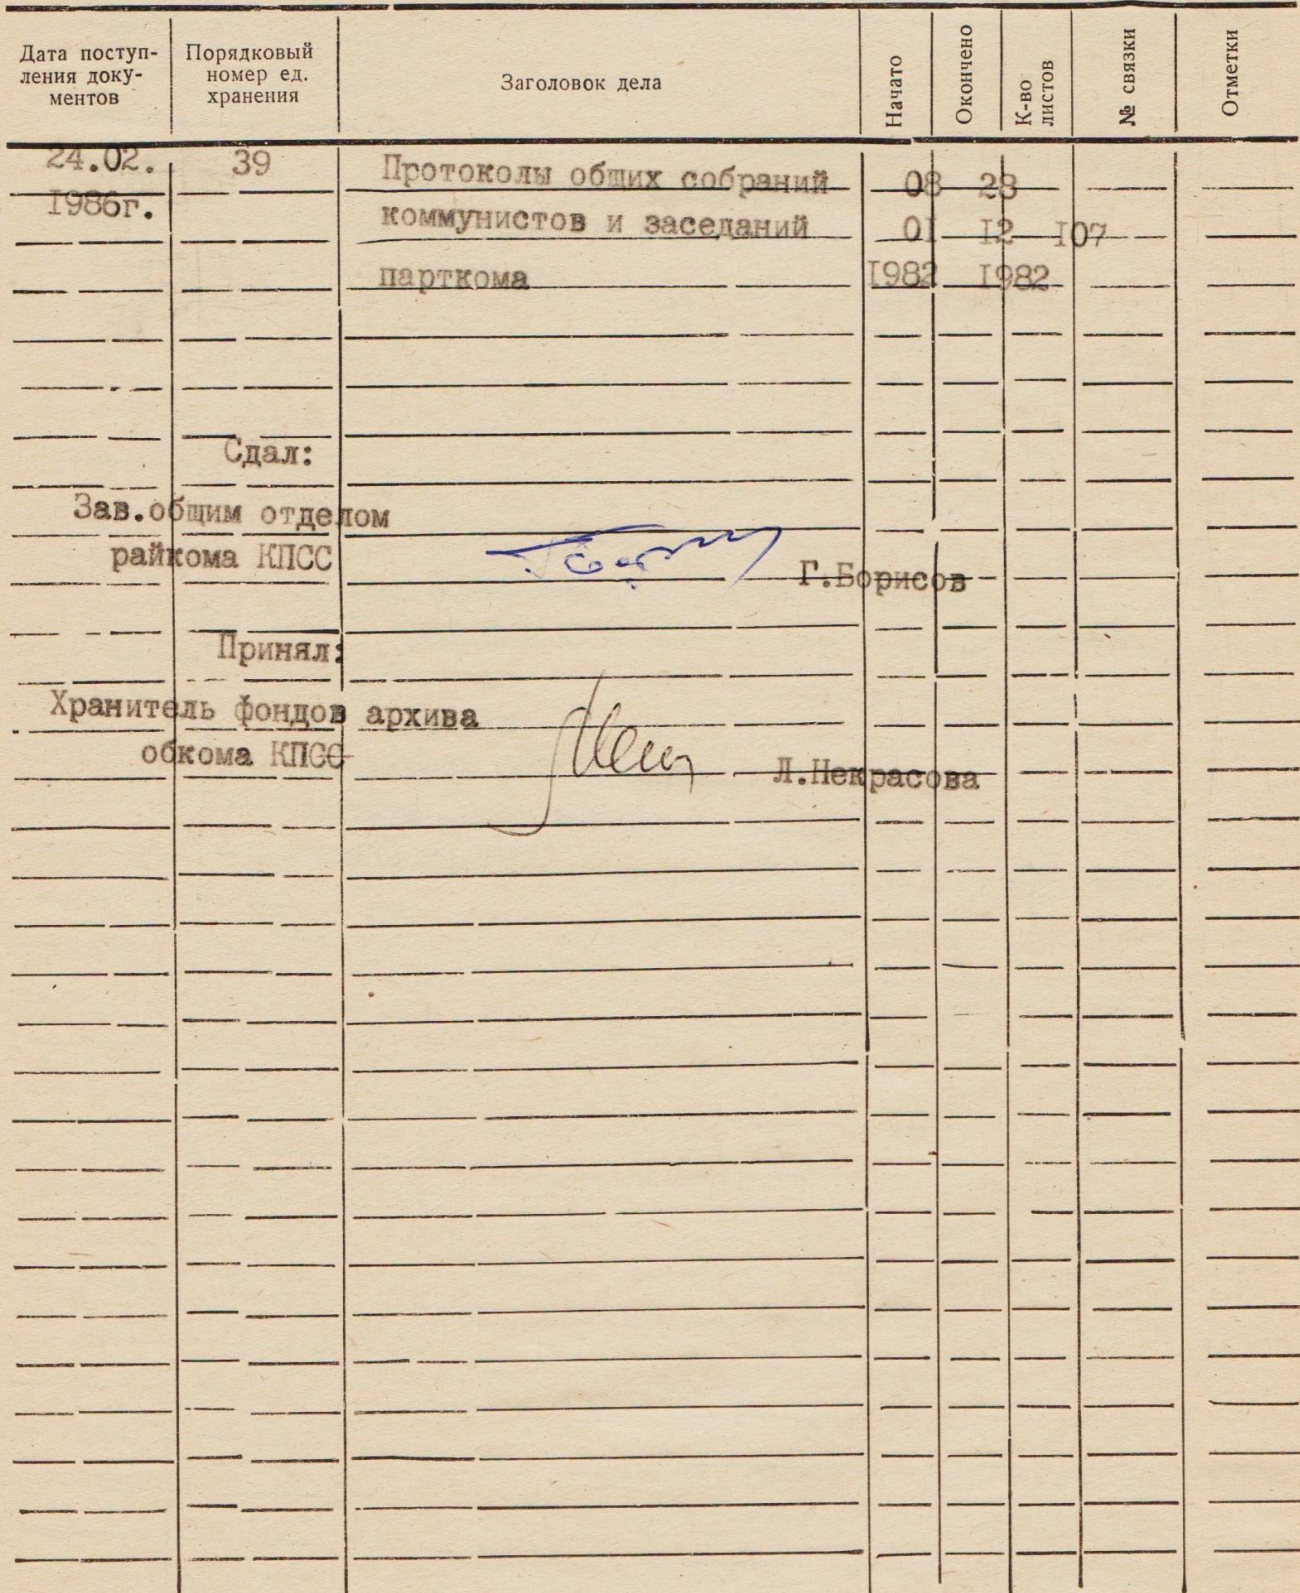 Дата поступ-
ления доку-
ментов
Порядковый
номер ед.
хранения
Заголовок дела
Начато
Окончено
К-во
листов
№ связки
Отметки
24.02. 39 Протоколы общих собраний 08 28
1986г. коммунистов и заседаний 01 12 107
парткома 1982 1982
Сдал:
Зав.общим отделом
райкома КПСС Г.Борисов
Принял:
Хранитель фондов архива
обкома КПСС Л.Некрасова